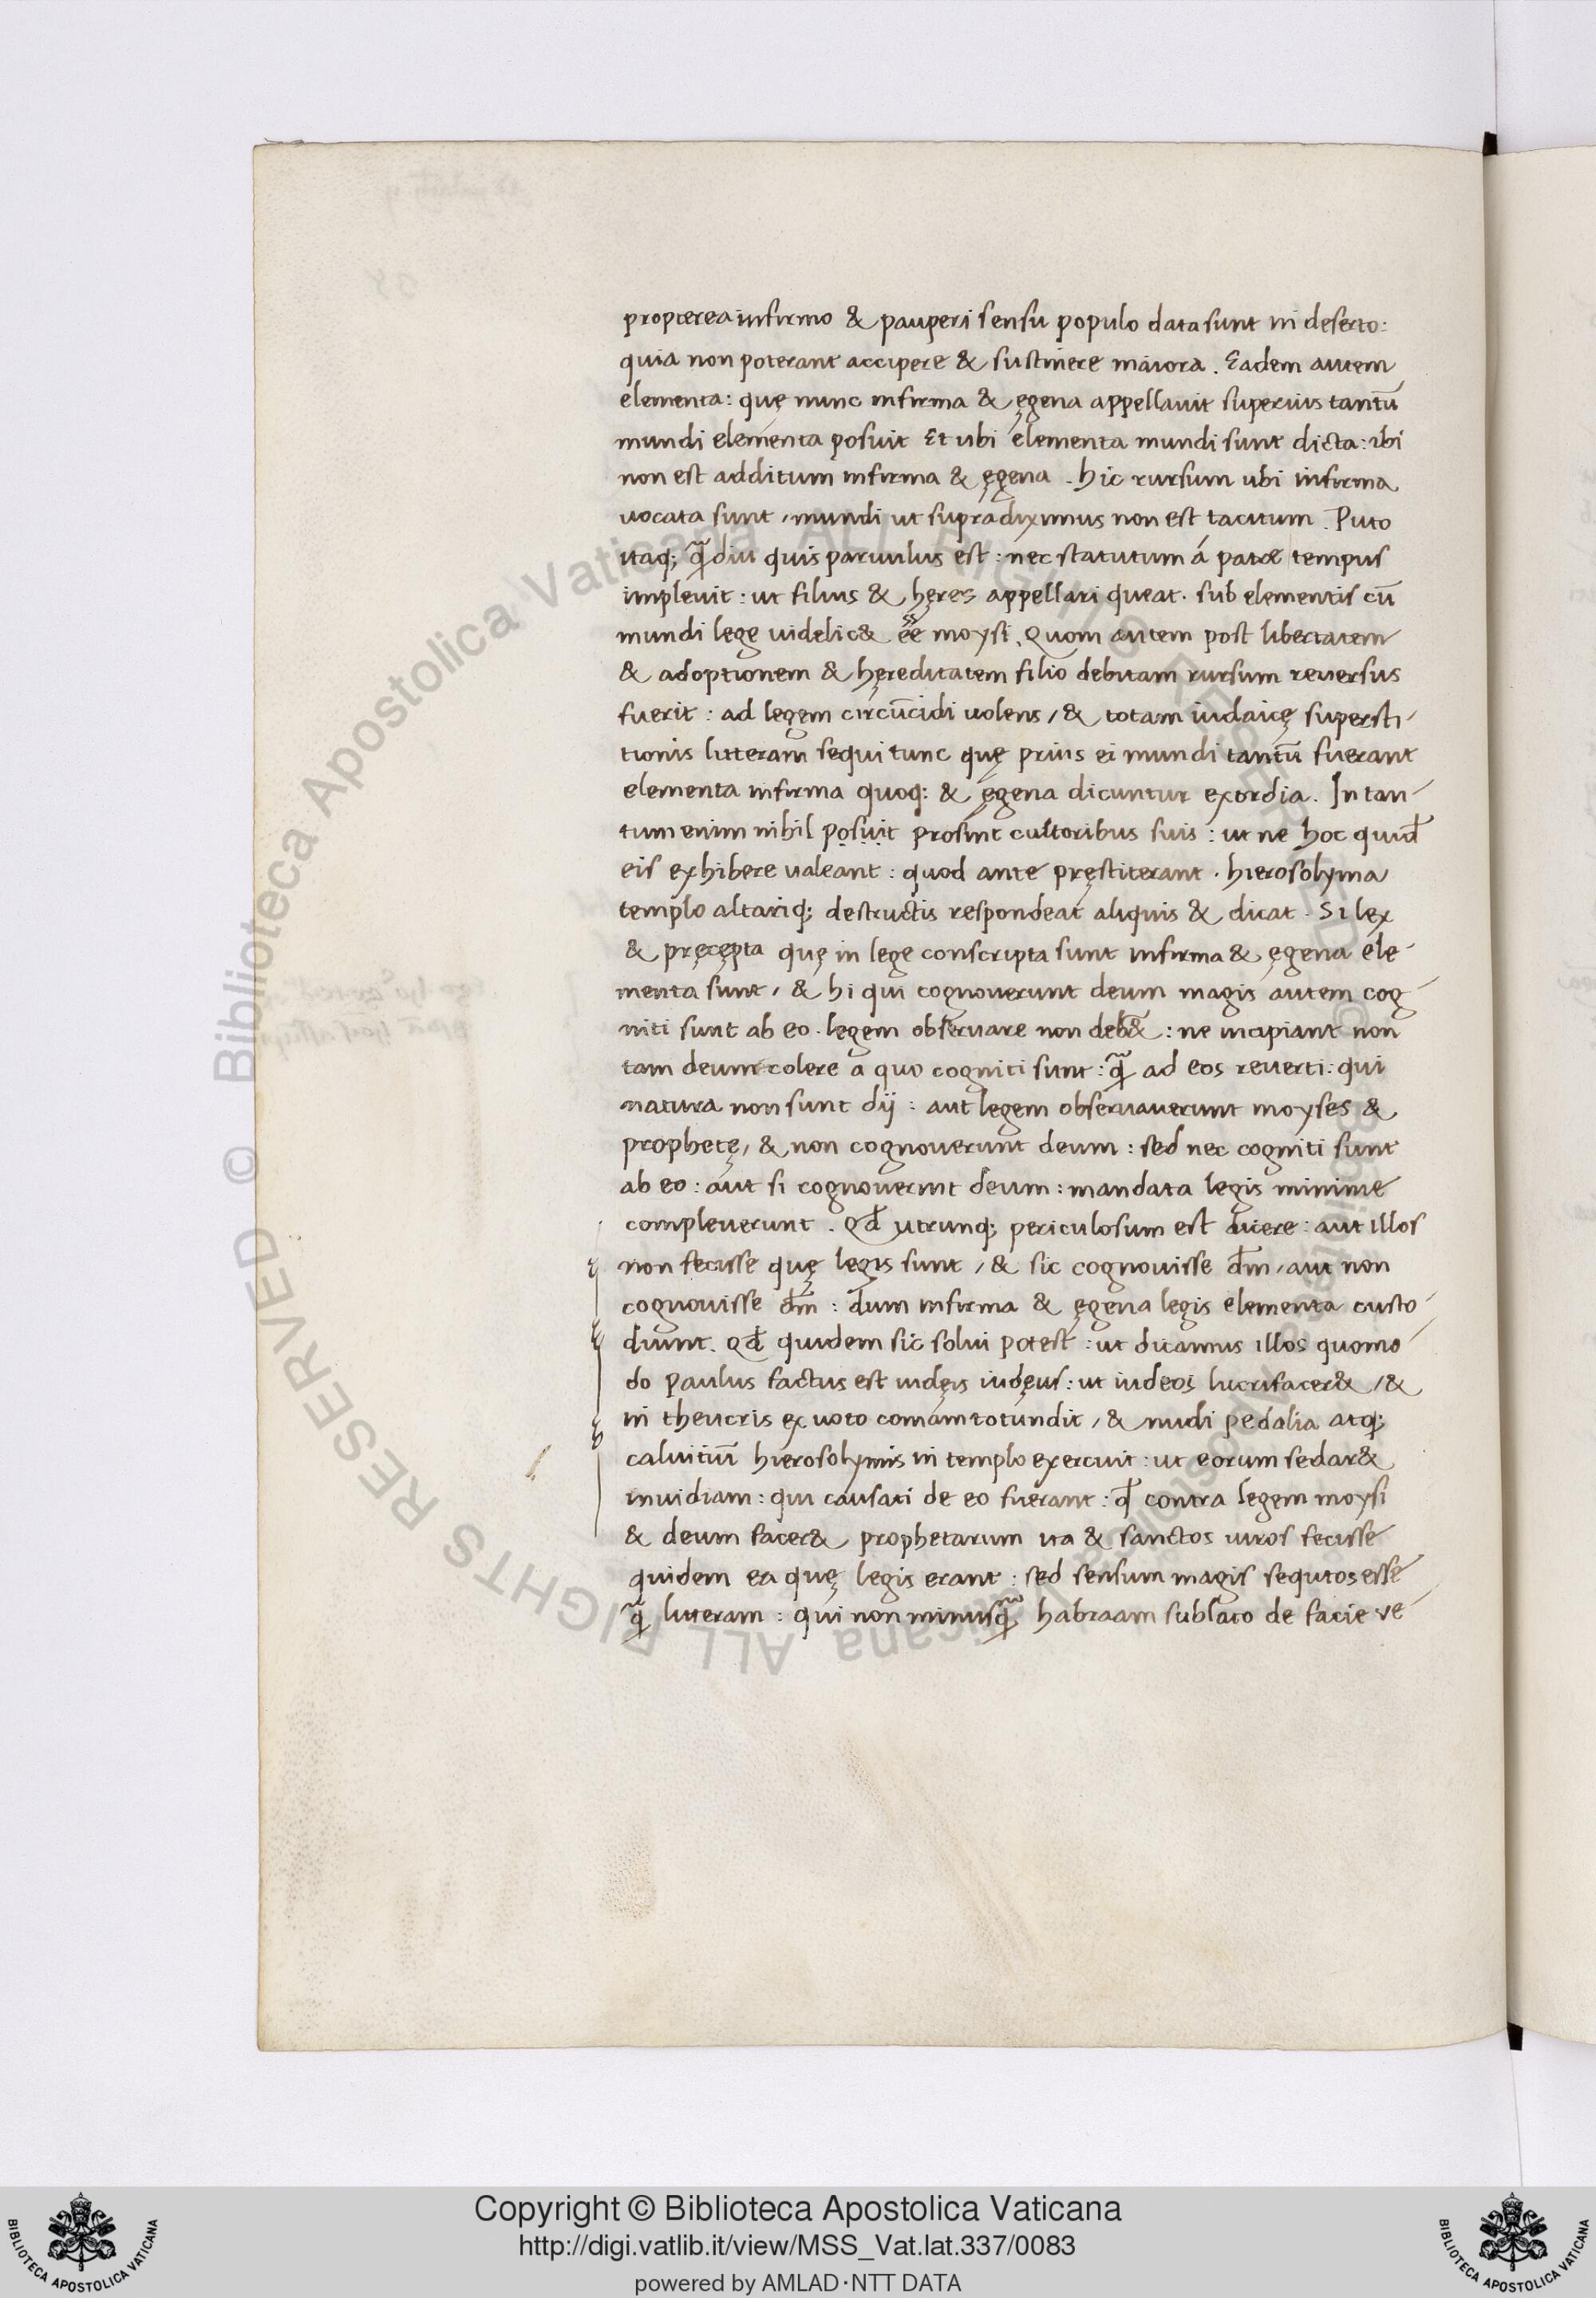 propterea infirmo & pauperi sensu populo data sunt in deserto:
quia non poterant accipere & sustinere maiora. Eadem autem
elementa: quę nunc infirma & ęgena appellavit superius tantū
mundi elementa posuit Et ubi elementa mundi sunt dicta: ibi
non est additum infirma & ęgena. hic rursum ubi infirma
uocata sunt, mundi ut supradiximus non est tacitum. Puto
itaq; q̃diu quis paruulus est: nec statutum á patre tempus
impleuit: ut filius & hęres appellari queat. sub elementis cū
mundi lege uidelic& ēē moysi. Quom autem post libertatem
& adoptionem & hęreditatem filio debitam rursum reuersus
fuerit: ad legem circūcidi uolens, & totam iudaicę supersti-
tionis litteram sequi tunc quę prius ei mundi tantū fuerant
elementa infirma quoq: & ęgena dicuntur exordia. In tan-
tum enim nihil posuit prosint cultoribus suis: ut ne hoc quid̄
eis exhibere ualeant: quod ante pręstiterant. hierosolyma
templo altariq; destructis respondeat aliquis & dicat. Si lex
& pręcępta quę in lege conscripta sunt infirma & ęgena ele-
menta sunt, & hi qui cognouerunt deum magis autem cog-
niti sunt ab eo. legem obseruare non deb&̄: ne incipiant non
tam deum colere a quo cogniti sunt: q̃ ad eos reuerti: qui
natura non sunt dij: aut legem obseruauerunt moyses &
prophetę, & non cognouerunt deum: sed nec cogniti sunt
ab eo: aut si cognouerint deum: mandata legis minime
compleuerunt. Qd̄ utrunq; periculosum est dicere: aut illos
non fecisse quę legis sunt, & sic cognouisse dm̄, aut non
cognouisse dm̄: dum infirma & ęgena legis elementa custo-
diunt. Qd̄ quidem sic solui potest: ut dicamus illos quomo-
do Paulus factus est iudęis iudęus: ut iudeos lucrifacer&, &
in theucris ex uoto comam totundit, & nudi pedalia atq;
caluitiū hierosolymis in templo exercuit: ut eorum sedar&
inuidiam: qui causati de eo fuerant: q̄ contra legem moysi
& deum facer& prophetarum ita & sanctos uiros fecisse
quidem ea quę legis erant: sed sensum magis sequtos esse
q̃ litteram: qui non minusq̃ habraam sublato de facie ve-
© Biblioteca Apostolica Vaticana ALL RIGHTS RESERVED
Copyright © Biblioteca Apostolica Vaticana
http://digi.vatlib.it/view/MSS_Vat.lat.337/0083
powered by AMLAD·NTT DATA
BIBLIOTECA APOSTOLICA VATICANA
BIBLIOTECA APOSTOLICA VATICANA